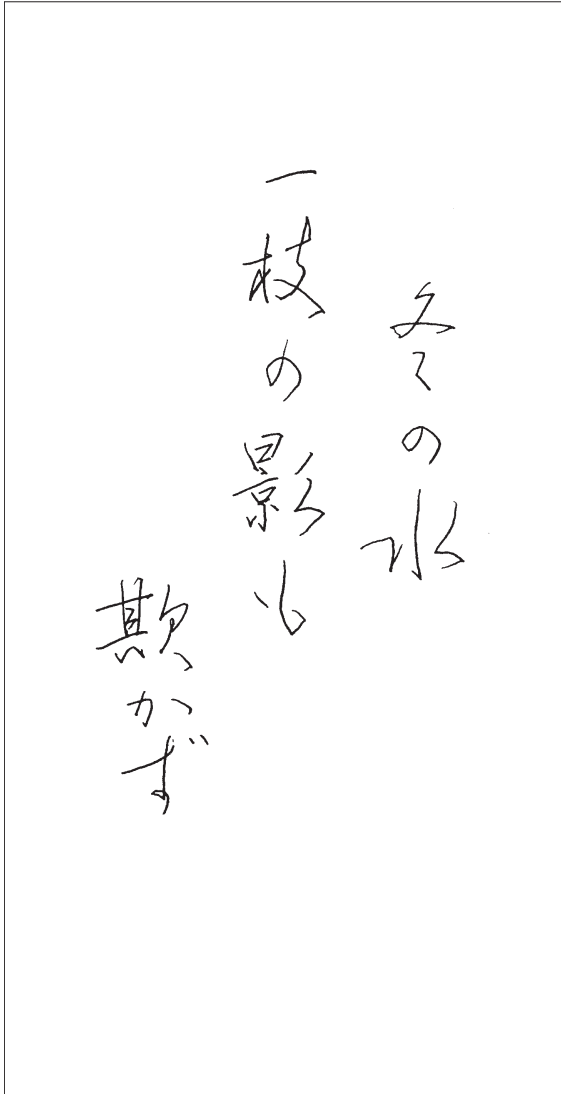 冬の水
一枝の影も
欺かず